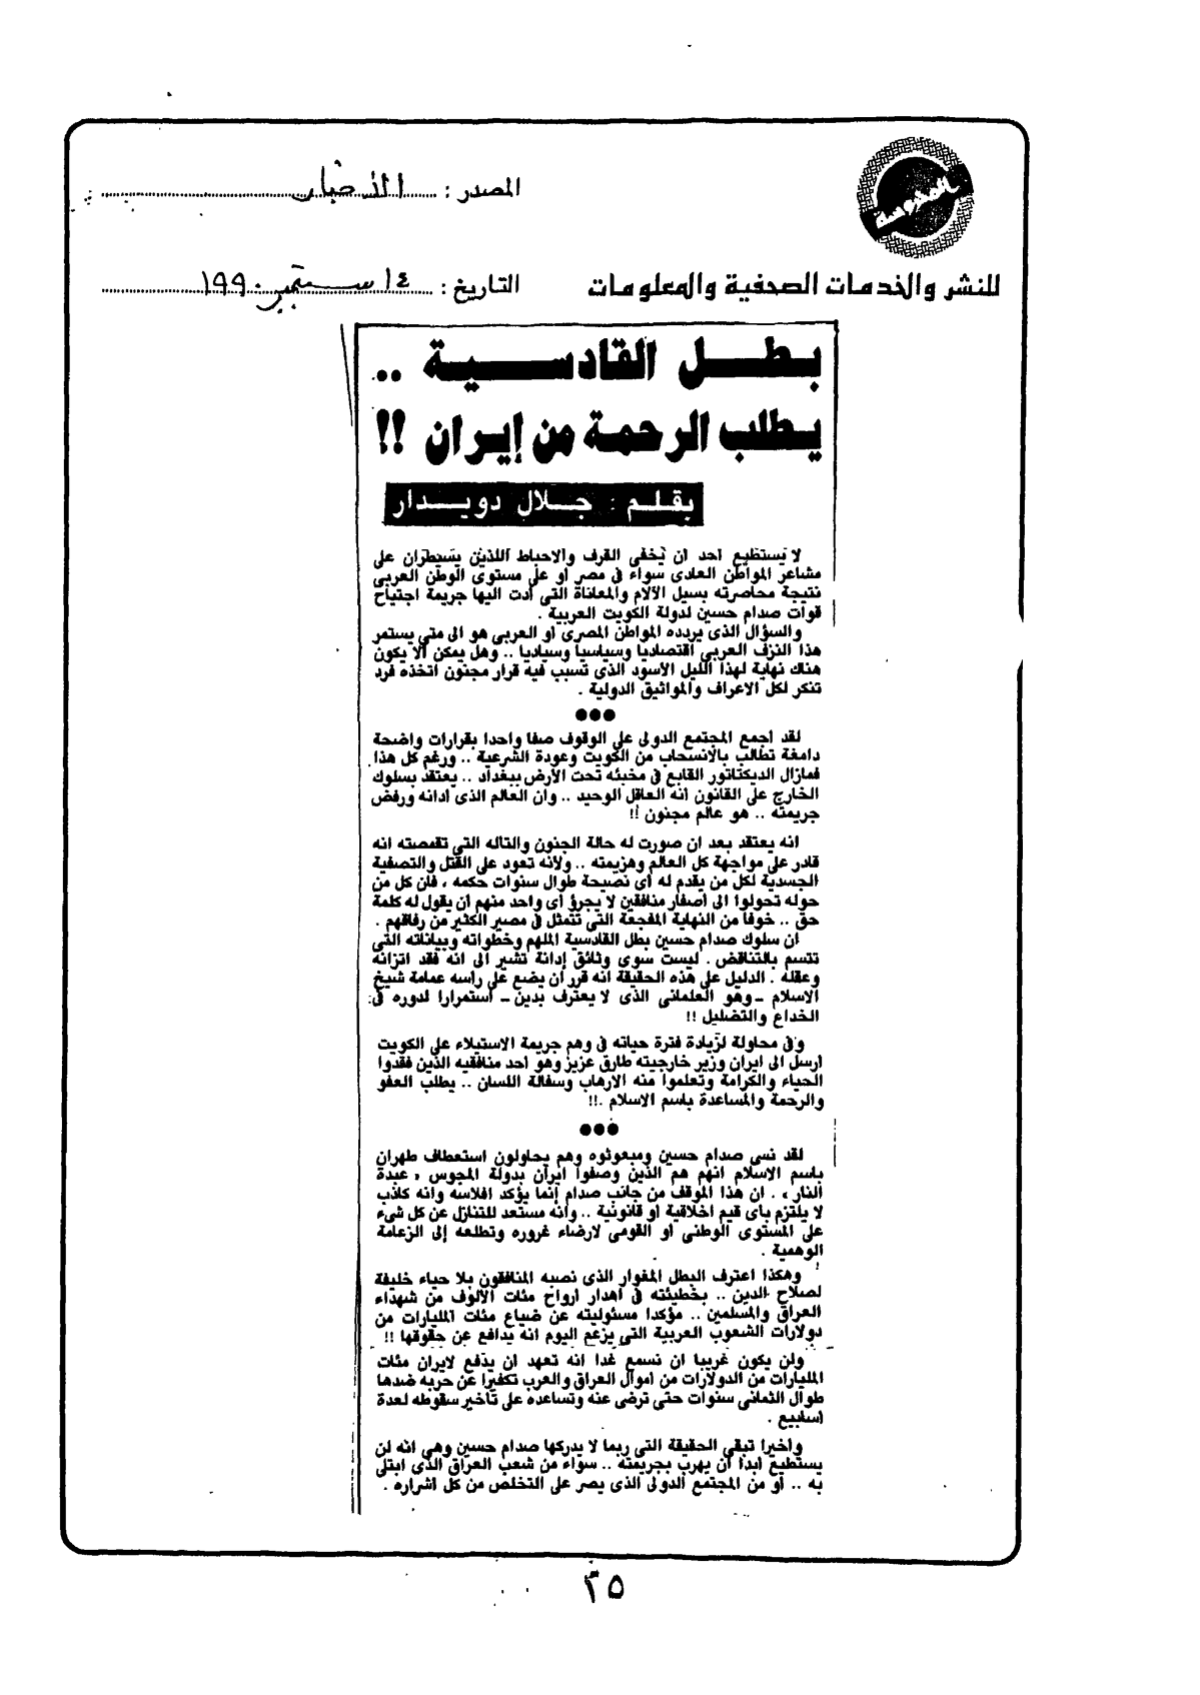 المحروسة
المصدر : الأخبار
للنشر والخدمات الصحفية والمعلومات
التاريخ : ١٤ سبتمبر ١٩٩٠
بطل القادسية ..
يطلب الرحمة من إيران !!
بقلم : جلال دويدار
لا يستطيع احد ان يخفى القرف والاحباط اللذين يسيطران على
مشاعر المواطن العادى سواء فى مصر او على مستوى الوطن العربى
نتيجة محاصرته بسيل الآلام والمعاناة التى ادت اليها جريمة اجتياح
قوات صدام حسين لدولة الكويت العربية .
والسؤال الذى يردده المواطن المصرى او العربى هو الى متى يستمر
هذا النزف العربى اقتصاديا وسياسيا وسياديا .. وهل يمكن ألا يكون
هناك نهاية لهذا الليل الاسود الذى تسبب فيه قرار مجنون اتخذه فرد
تنكر لكل الاعراف والمواثيق الدولية .
●●●
لقد اجمع المجتمع الدولى على الوقوف صفا واحدا بقرارات واضحة
دامغة تطالب بالانسحاب من الكويت وعودة الشرعية .. ورغم كل هذا
فمازال الديكتاتور القابع فى مخبئه تحت الأرض ببغداد .. يعتقد بسلوك
الخارج على القانون انه العاقل الوحيد .. وان العالم الذى ادانه ورفض
جريمته .. هو عالم مجنون !!
انه يعتقد بعد ان صورت له حالة الجنون والتاله التى تقمصته انه
قادر على مواجهة كل العالم وهزيمته .. ولأنه تعود على القتل والتصفية
الجسدية لكل من يقدم له أى نصيحة طوال سنوات حكمه ، فان كل من
حوله تحولوا الى أصفار منافقين لا يجرؤ أى واحد منهم أن يقول له كلمة
حق .. خوفا من النهاية المفجعة التى تتمثل فى مصير الكثير من رفاقهم .
ان سلوك صدام حسين بطل القادسية الملهم وخطواته وبياناته التى
تتسم بالتناقض . ليست سوى وثائق إدانة تشير الى انه فقد اتزانه
وعقله . الدليل على هذه الحقيقة انه قرر أن يضع على راسه عمامة شيخ
الاسلام ـ وهو العلمانى الذى لا يعترف بدين ـ استمرارا لدوره فى
الخداع والتضليل !!
وفى محاولة لزيادة فترة حياته فى وهم جريمة الاستيلاء على الكويت
ارسل الى ايران وزير خارجيته طارق عزيز وهو احد منافقيه الذين فقدوا
الحياء والكرامة وتعلموا منه الارهاب وسفالة اللسان .. يطلب العفو
والرحمة والمساعدة باسم الاسلام .!!
●●●
لقد نسى صدام حسين ومبعوثوه وهم يحاولون استعطاف طهران
باسم الاسلام انهم هم الذين وصفوا ايران بدولة المجوس ، عبدة
النار ، . ان هذا الموقف من جانب صدام إنما يؤكد افلاسه وانه كاذب
لا يلتزم باى قيم اخلاقية او قانونية .. وأنه مستعد للتنازل عن كل شىء
على المستوى الوطنى او القومى لارضاء غروره وتطلعه إلى الزعامة
الوهمية .
وهكذا اعترف البطل المغوار الذى نصبه المنافقون بلا حياء خليفة
لصلاح الدين .. بخطيئته فى اهدار ارواح مئات الألوف من شهداء
العراق والمسلمين .. مؤكدا مسئوليته عن ضياع مئات المليارات من
دولارات الشعوب العربية التى يزعم اليوم انه يدافع عن حقوقها !!
ولن يكون غريبا ان نسمع غدا انه تعهد ان يدفع لايران مئات
المليارات من الدولارات من اموال العراق والعرب تكفيرا عن حربه ضدها
طوال الثمانى سنوات حتى ترضى عنه وتساعده على تأخير سقوطه لعدة
اسابيع .
واخيرا تبقى الحقيقة التى ربما لا يدركها صدام حسين وهى انه لن
يستطيع ابدا ان يهرب بجريمته .. سواء من شعب العراق الذى ابتلى
به .. أو من المجتمع الدولى الذى يصر على التخلص من كل اشراره .
٢٥